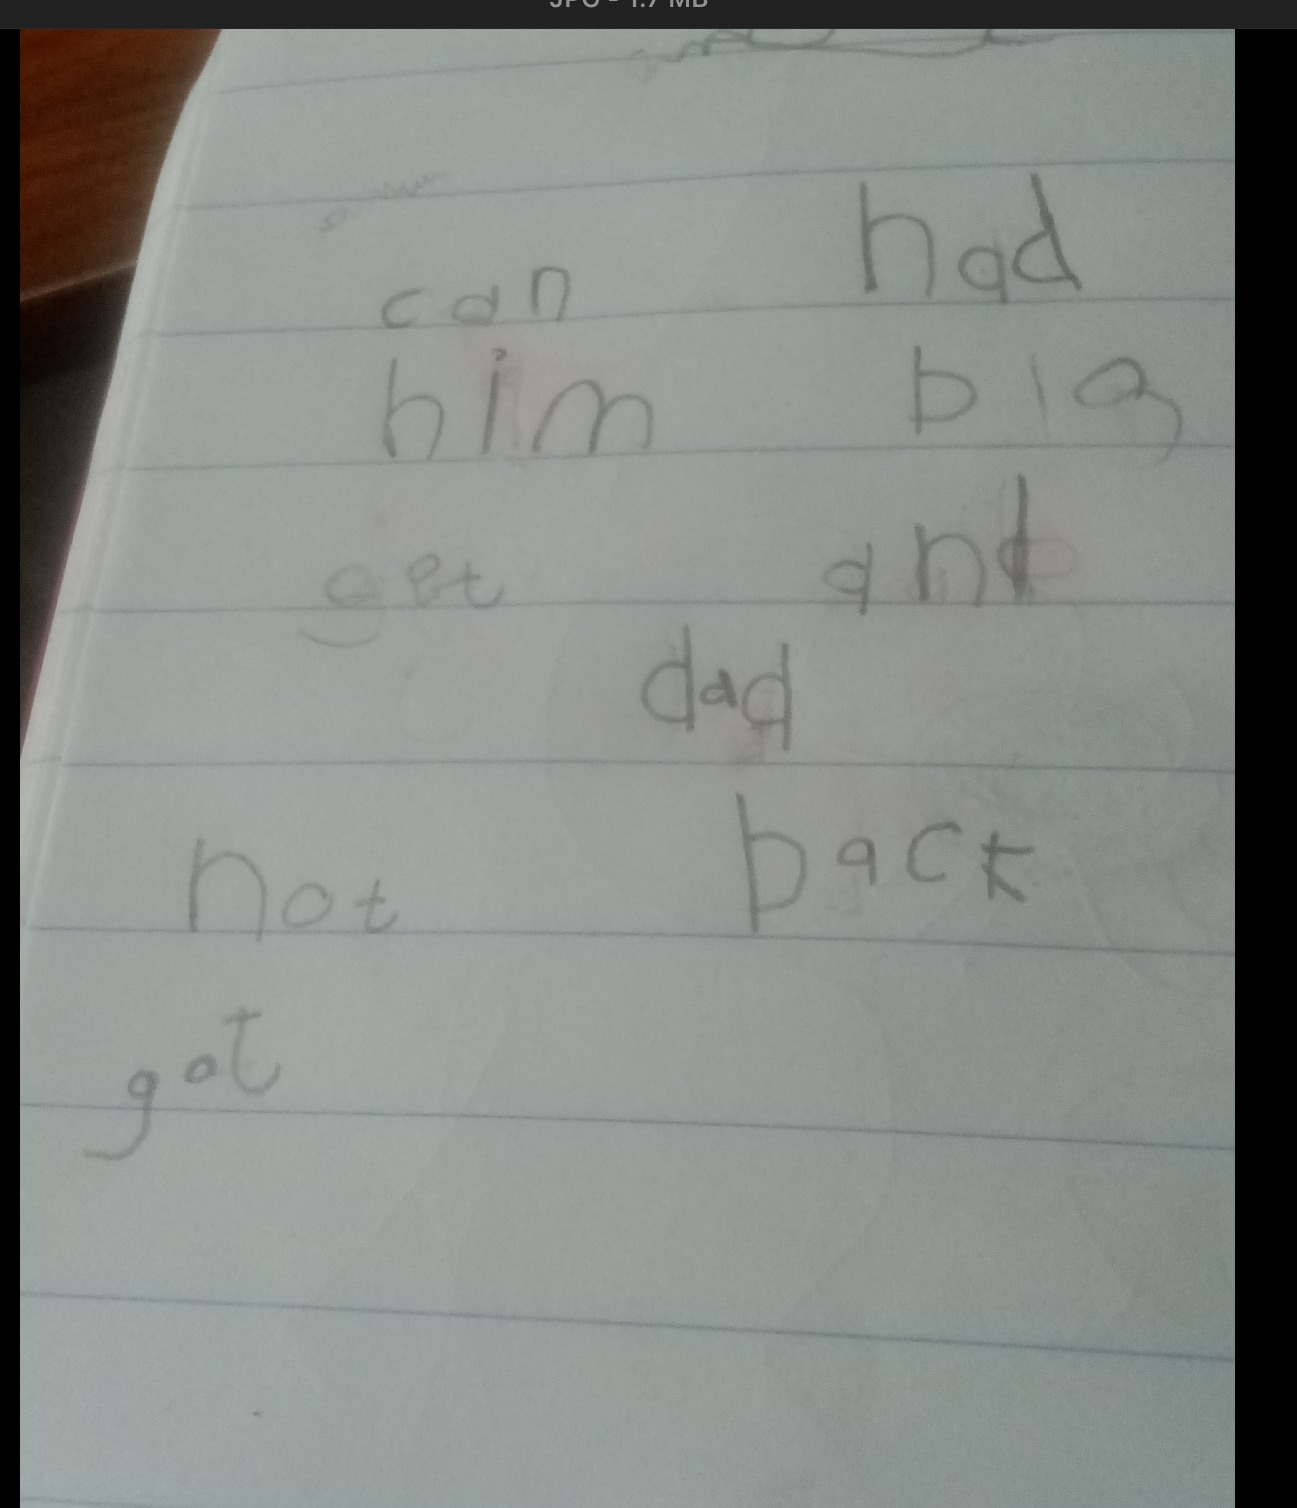 can had
him big
get and
dad
not back
got